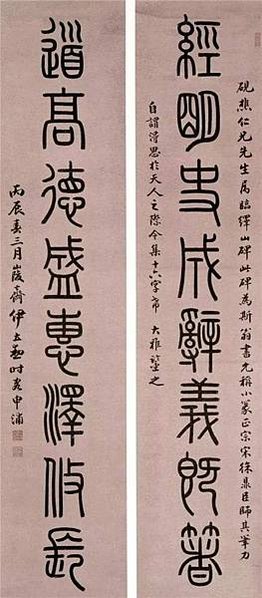 硯樵仁兄先生屬臨繹山碑此碑為斯翁書尤稱小篆正宗宋徐鼎臣師其筆力
經明史成辭義既箸
自謂得思於天人之際今集十六字希 大雅鑒之
道高德盛惠澤攸長
丙辰春三月峻齋伊立勳時客申浦